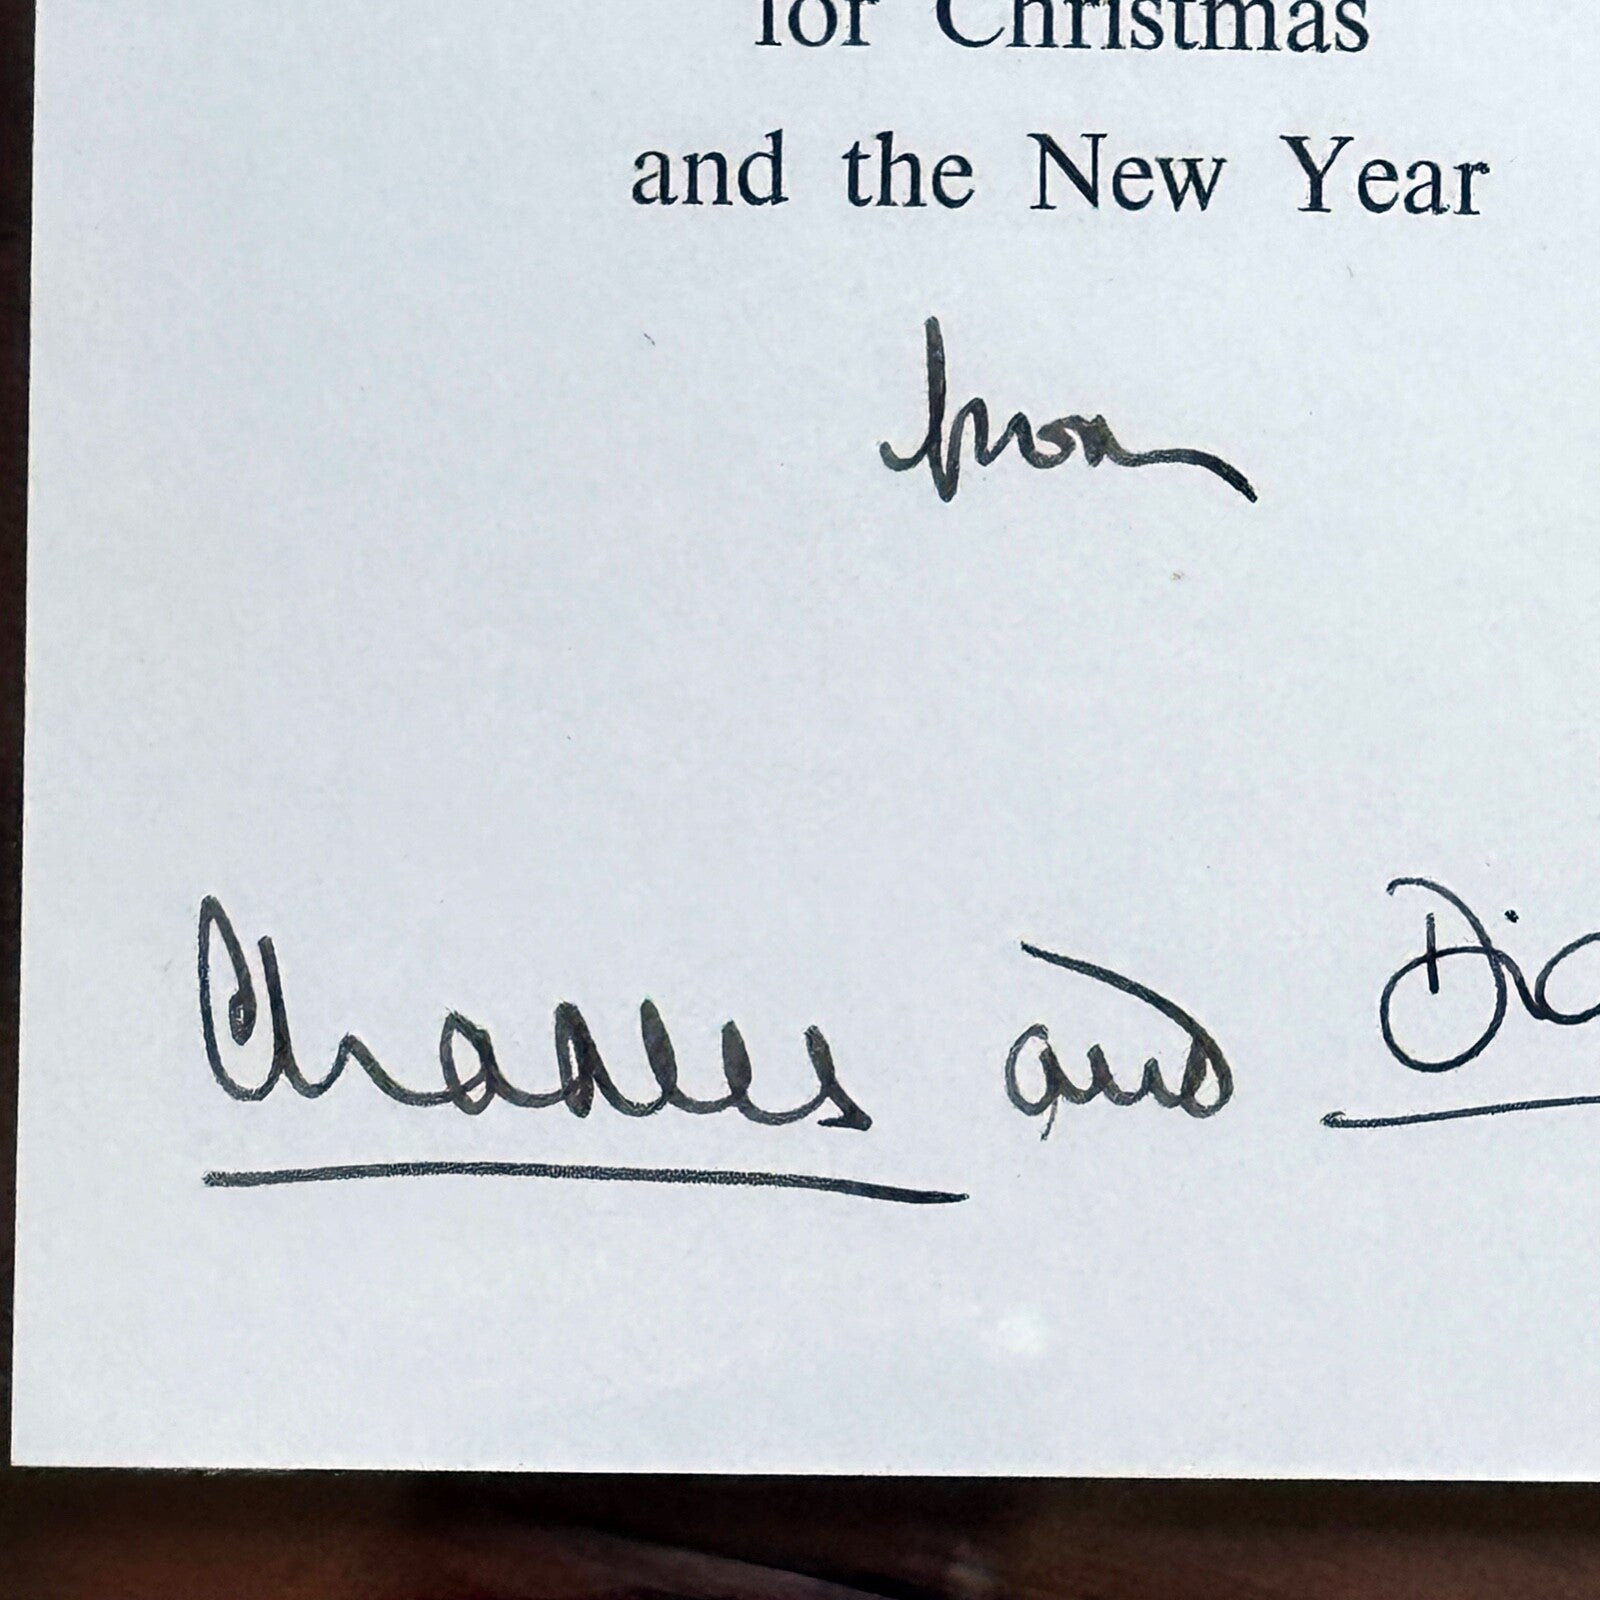 for Christmas
and the New Year
from
Charles and Dia